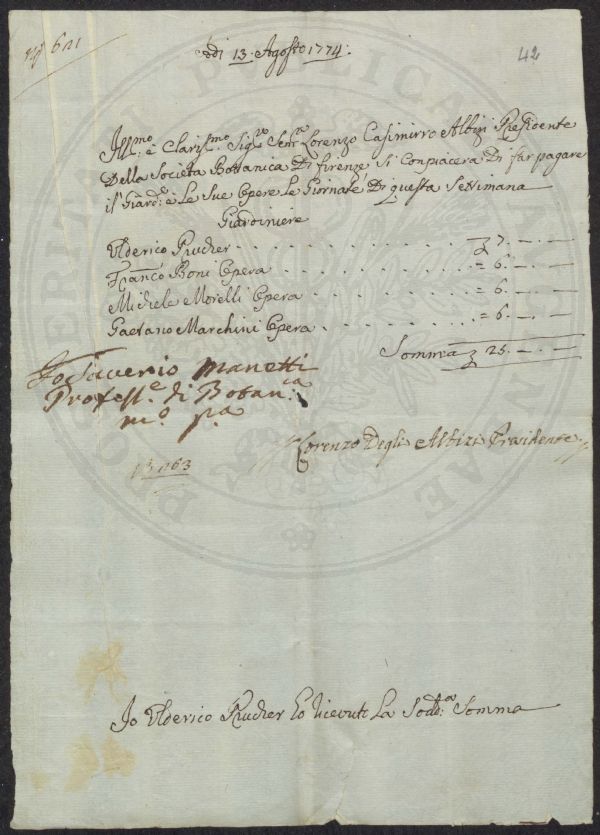 Adi 13: Agosto 1774:
42
Ill:mo e Claris:mo Sig:re Sen:re Lorenzo Casimirro Albizi Presidente
Della Società Bottanica Di firenze Si Conpiacerà Di far pagare
il Giard:e e Le Sue Opere Le Giornate Di questa Settimana
Giardiniere
Ulderico Prucher . . . . . . . . . . . 7. — . —
Franco: Boni Opera . . . . . . . . . = 6. — . —
Michele Morelli Opera . . . . . . . . = 6. — . —
Gaetano Marchini Opera . . . . . . . = 6. — . —
Somma 25. — . —
Io Saverio Manetti
Profess:e di Botan:ca
m:o p:a
Lorenzo Degli Albizi Presidente
Io Ulderico Prucher ho ricevuto La Sodd:a Somma
PROSPERITATI PUBLICAE AUGENDAE